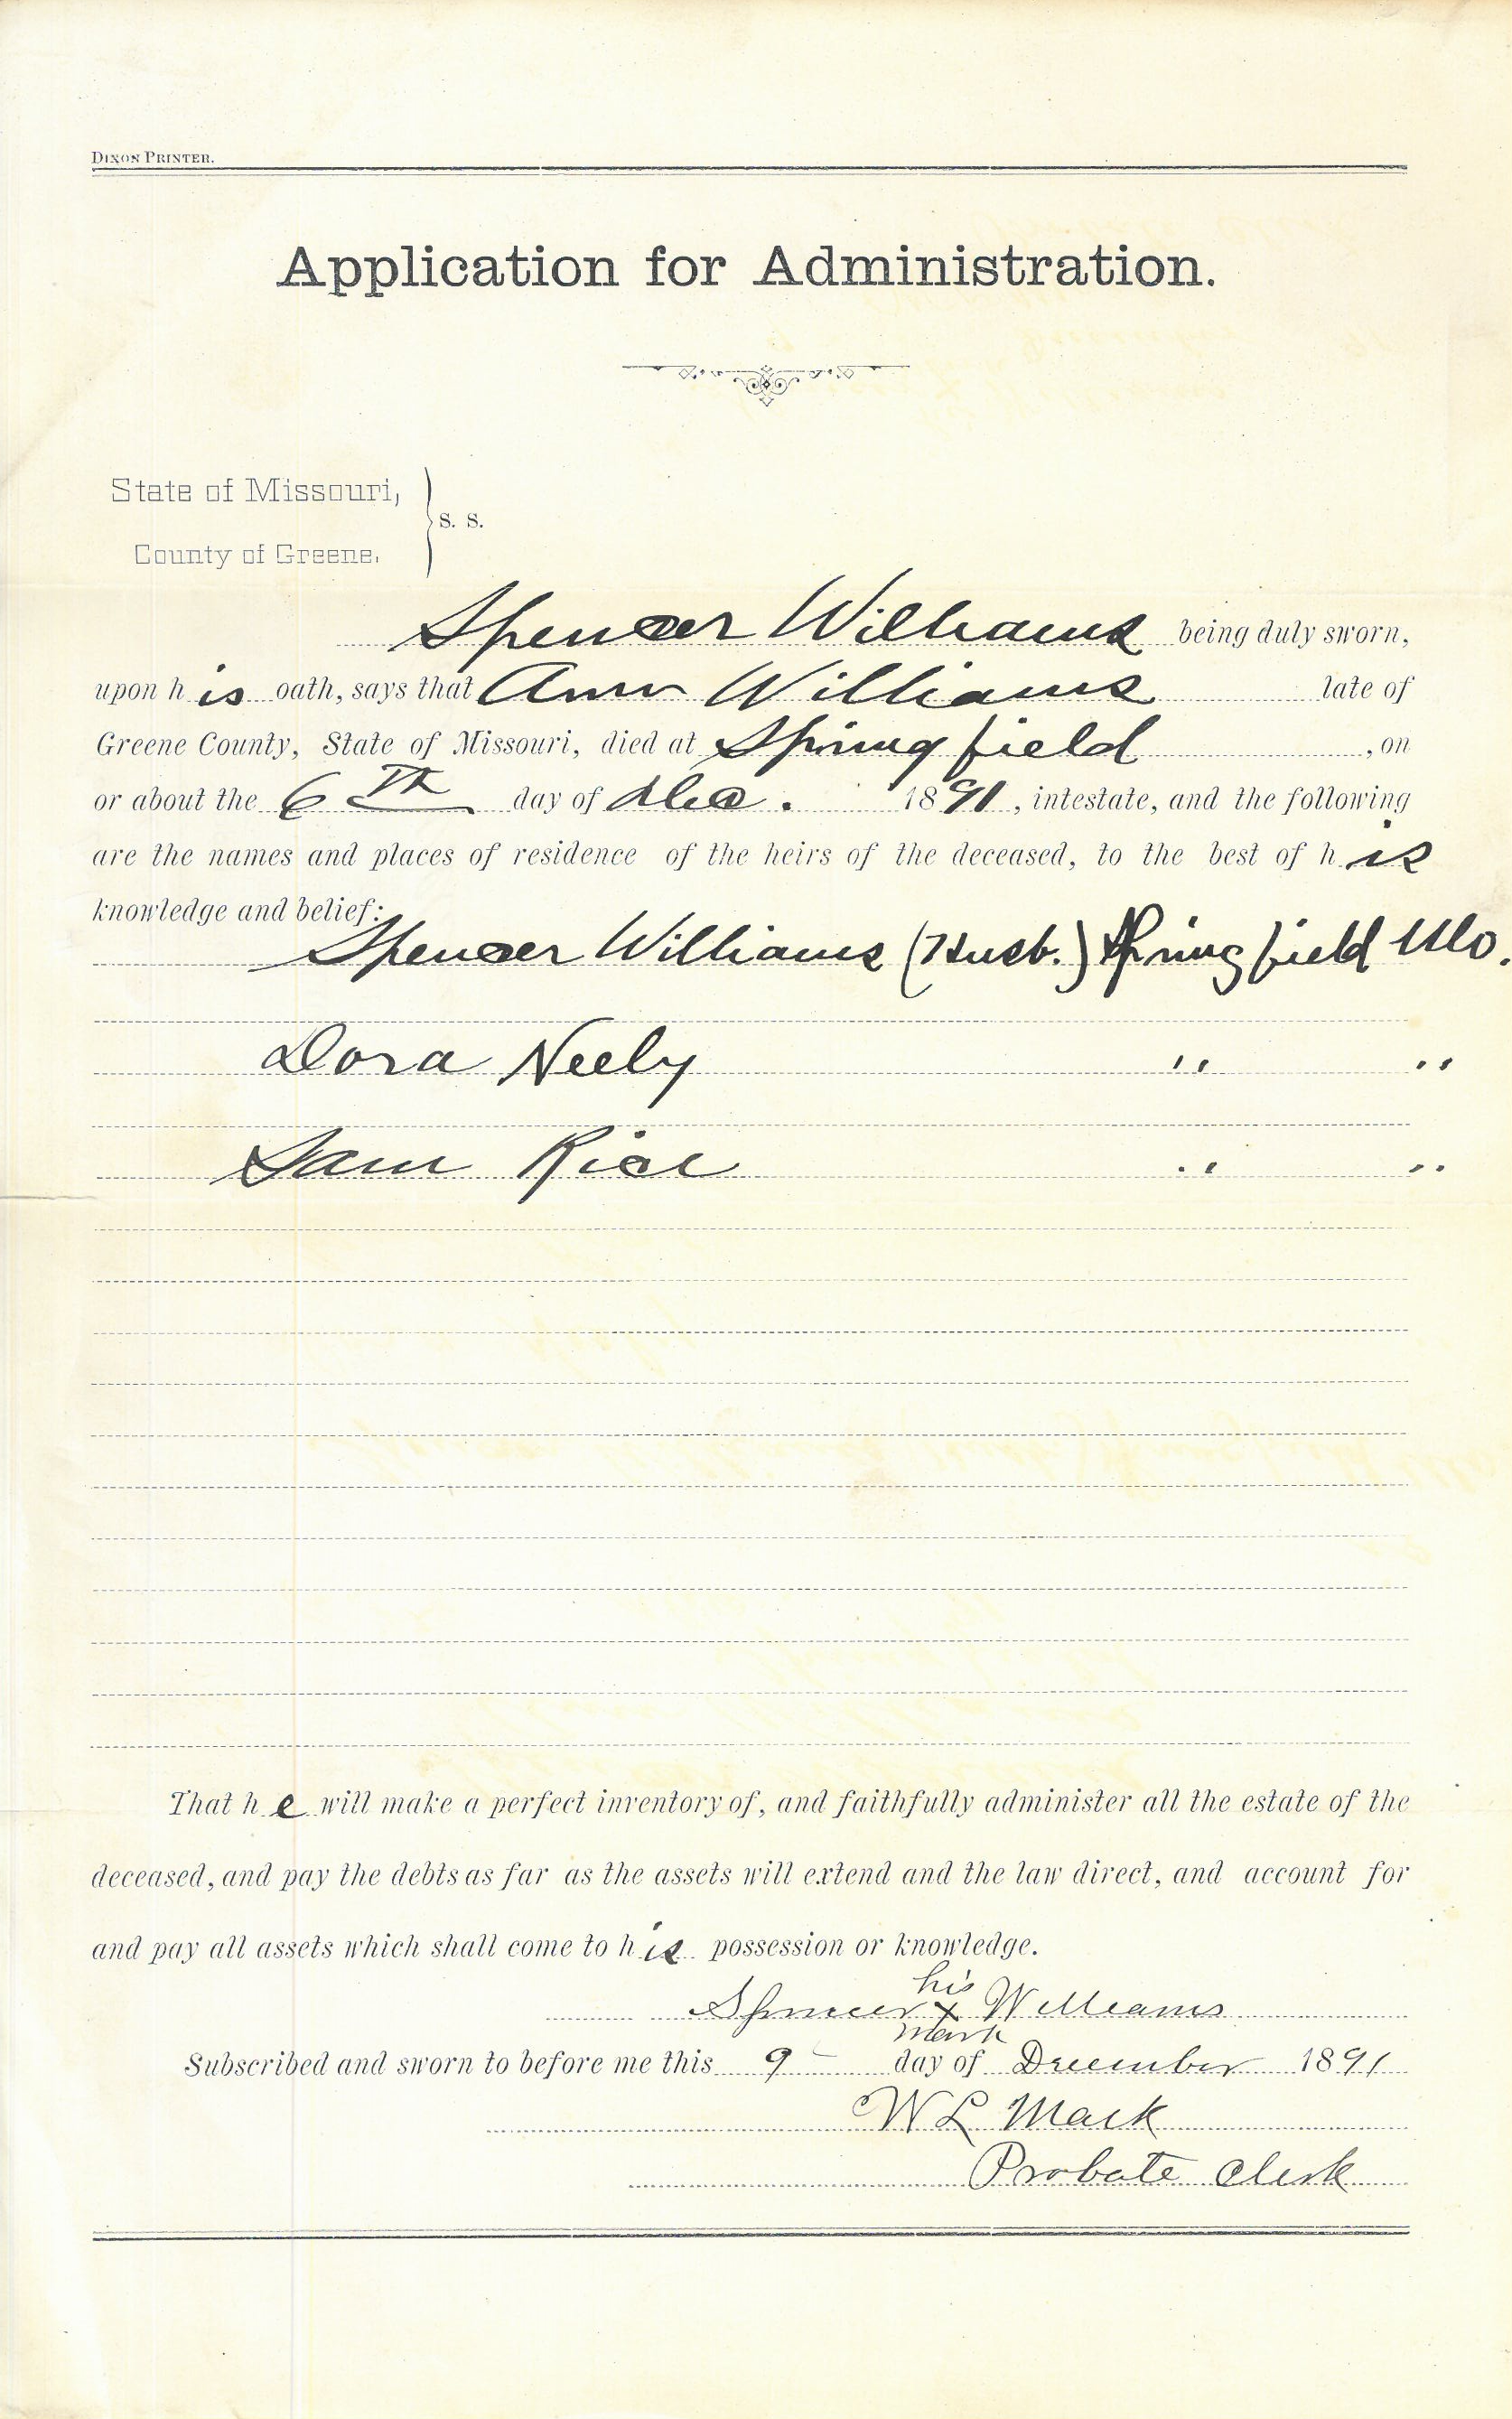 DIXON PRINTER.
Application for Administration.
State of Missouri,
S. S.
County of Greene,
Spencer Williams being duly sworn,
upon his oath, says that Ann Williams late of
Greene County, State of Missouri, died at Springfield, on
or about the 6th day of Dec. 1891, intestate, and the following
are the names and places of residence of the heirs of the deceased, to the best of his
knowledge and belief:
Spencer Williams (Husb.) Springfield Mo.
Dora Neely " "
Sam Rice " "
That he will make a perfect inventory of, and faithfully administer all the estate of the
deceased, and pay the debts as far as the assets will extend and the law direct, and account for
and pay all assets which shall come to his possession or knowledge.
his
Spencer x Williams
mark
Subscribed and sworn to before me this 9 day of December 1891
W L Mack
Probate Clerk